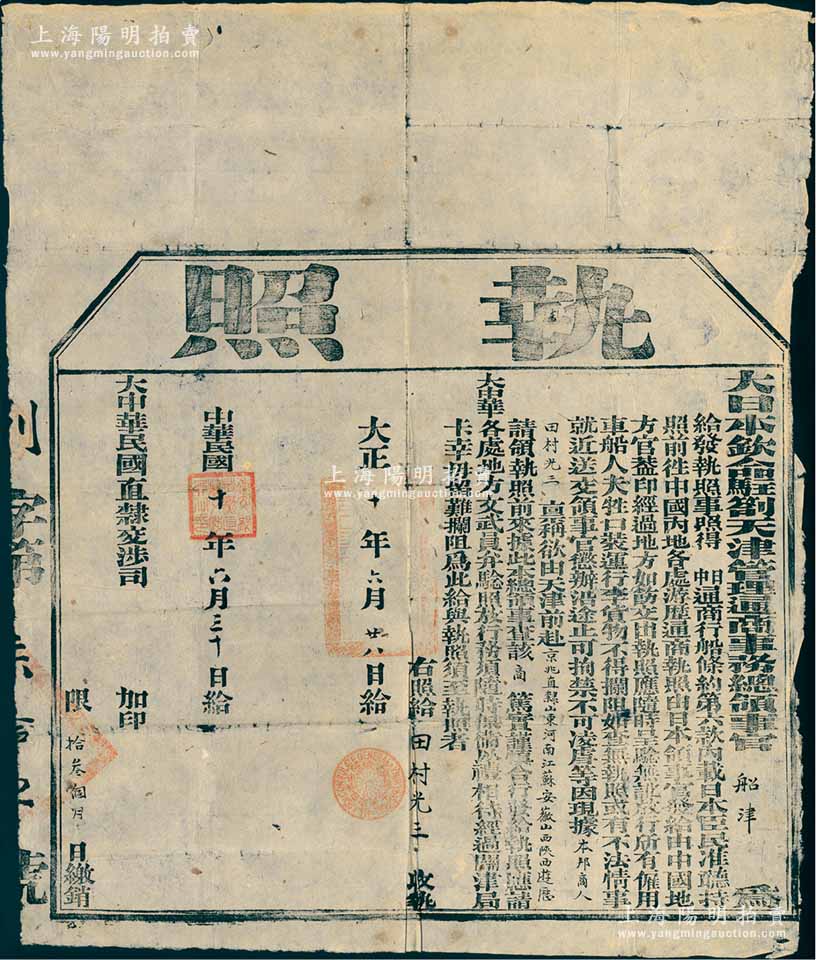 上海陽明拍賣
www.yangmingauction.com
執照
大日本欽命駐劄天津管理通商事務總領事官 船津 為
給發執照事照得 中日通商行船條約第六款內載日本臣民准聽持
照前往中國內地各處游歷通商執照由日本領事官發給由中國地
方官蓋印經過地方如飭交出執照應隨時呈驗無訛放行所有僱用
車船人夫牲口裝運行李貨物不得攔阻如查無執照或有不法情事
就近送交領事官懲辦沿途止可拘禁不可凌虐等因現據 本邦商人
田村光三 直稱欲由天津前赴京兆直隸山東河南江蘇安徽山西陝西遊歷
請領執照前來據此本總領事查該 商 篤實謹慎合行發給執照應請
大中華各處地方文武員弁驗照放行務須隨時保衛以禮相待經過關津局
卡幸毋留難攔阻為此給與執照須至執照者
右照給 田村光三 收執
大正 十 年 六 月 廿八 日給
中華民國 十 年 六 月 三十 日給
大中華民國直隸交涉司 加印
限 拾叁個月 日繳銷
上海陽明拍賣
www.yangmingauction.com
上海陽明拍賣
www.yangmingauction.com